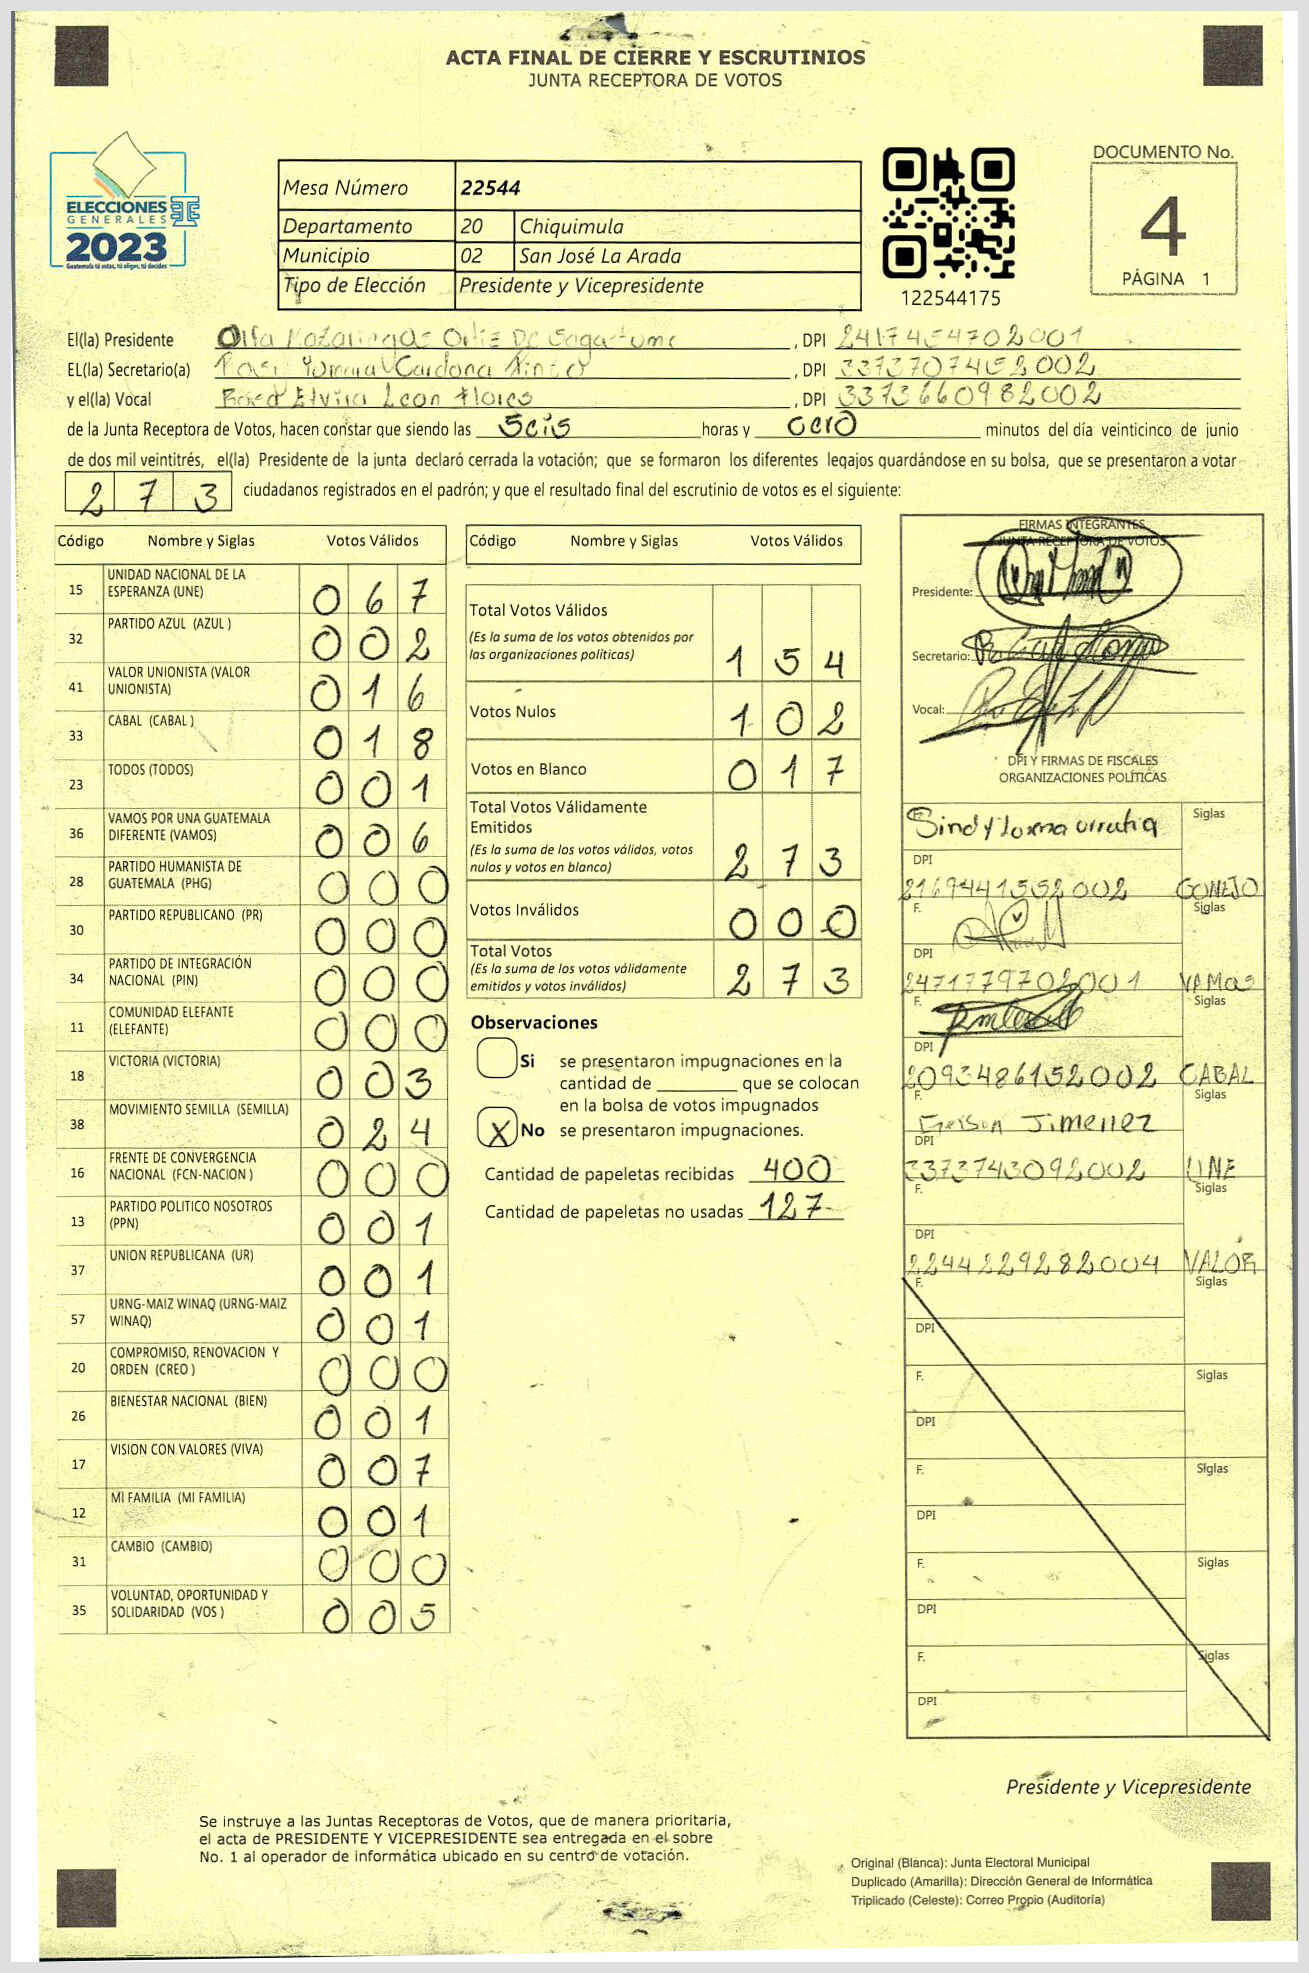 ACTA FINAL DE CIERRE Y ESCRUTINIOS
JUNTA RECEPTORA DE VOTOS
ELECCIONES
GENERALES
2023
Guatemala tú votas, tú eliges, tú decides
Mesa Número 22544
Departamento 20 Chiquimula
Municipio 02 San José La Arada
Tipo de Elección Presidente y Vicepresidente
122544175
DOCUMENTO No.
4
PÁGINA 1
El(la) Presidente Ortiz De Sagastume , DPI 2417454702001
EL(la) Secretario(a) Cardona , DPI 3373707452002
y el(la) Vocal Elvira Leon Flores , DPI 3373660982002
de la Junta Receptora de Votos, hacen constar que siendo las Seis horas y cero minutos del día veinticinco de junio
de dos mil veintitrés, el(la) Presidente de la junta declaró cerrada la votación; que se formaron los diferentes legajos guardándose en su bolsa, que se presentaron a votar
2 7 3 ciudadanos registrados en el padrón; y que el resultado final del escrutinio de votos es el siguiente:
Código Nombre y Siglas Votos Válidos
15 UNIDAD NACIONAL DE LA ESPERANZA (UNE) 0 6 7
32 PARTIDO AZUL (AZUL ) 0 0 2
41 VALOR UNIONISTA (VALOR UNIONISTA) 0 1 6
33 CABAL (CABAL ) 0 1 8
23 TODOS (TODOS) 0 0 1
36 VAMOS POR UNA GUATEMALA DIFERENTE (VAMOS) 0 0 6
28 PARTIDO HUMANISTA DE GUATEMALA (PHG) 0 0 0
30 PARTIDO REPUBLICANO (PR) 0 0 0
34 PARTIDO DE INTEGRACIÓN NACIONAL (PIN) 0 0 0
11 COMUNIDAD ELEFANTE (ELEFANTE) 0 0 0
18 VICTORIA (VICTORIA) 0 0 3
38 MOVIMIENTO SEMILLA (SEMILLA) 0 2 4
16 FRENTE DE CONVERGENCIA NACIONAL (FCN-NACION ) 0 0 0
13 PARTIDO POLITICO NOSOTROS (PPN) 0 0 1
37 UNION REPUBLICANA (UR) 0 0 1
57 URNG-MAIZ WINAQ (URNG-MAIZ WINAQ) 0 0 1
20 COMPROMISO, RENOVACION Y ORDEN (CREO ) 0 0 0
26 BIENESTAR NACIONAL (BIEN) 0 0 1
17 VISION CON VALORES (VIVA) 0 0 7
12 MI FAMILIA (MI FAMILIA) 0 0 1
31 CAMBIO (CAMBIO) 0 0 0
35 VOLUNTAD, OPORTUNIDAD Y SOLIDARIDAD (VOS ) 0 0 5
Código Nombre y Siglas Votos Válidos
Total Votos Válidos
(Es la suma de los votos obtenidos por
las organizaciones políticas) 1 5 4
Votos Nulos 1 0 2
Votos en Blanco 0 1 7
Total Votos Válidamente
Emitidos
(Es la suma de los votos válidos, votos
nulos y votos en blanco) 2 7 3
Votos Inválidos 0 0 0
Total Votos
(Es la suma de los votos válidamente
emitidos y votos inválidos) 2 7 3
Observaciones
Si se presentaron impugnaciones en la
cantidad de ________ que se colocan
en la bolsa de votos impugnados
X No se presentaron impugnaciones.
Cantidad de papeletas recibidas 400
Cantidad de papeletas no usadas 127
FIRMAS INTEGRANTES
JUNTA RECEPTORA DE VOTOS
Presidente:
Secretario:
Vocal:
DPI Y FIRMAS DE FISCALES
ORGANIZACIONES POLÍTICAS
Sindy Siglas
DPI
2169441552002 CONEJO
F. Siglas
DPI
2471779702001 VAMOS
F. Siglas
DPI
2093486152002 CABAL
F. Gerson Jimenez Siglas
DPI
3373743092002 UNE
F. Siglas
DPI
2244229282004 VALOR
F. Siglas
DPI
F. Siglas
DPI
F. Siglas
DPI
F. Siglas
DPI
F. Siglas
DPI
Presidente y Vicepresidente
Se instruye a las Juntas Receptoras de Votos, que de manera prioritaria,
el acta de PRESIDENTE Y VICEPRESIDENTE sea entregada en el sobre
No. 1 al operador de informática ubicado en su centro de votación.
Original (Blanca): Junta Electoral Municipal
Duplicado (Amarilla): Dirección General de Informática
Triplicado (Celeste): Correo Propio (Auditoría)